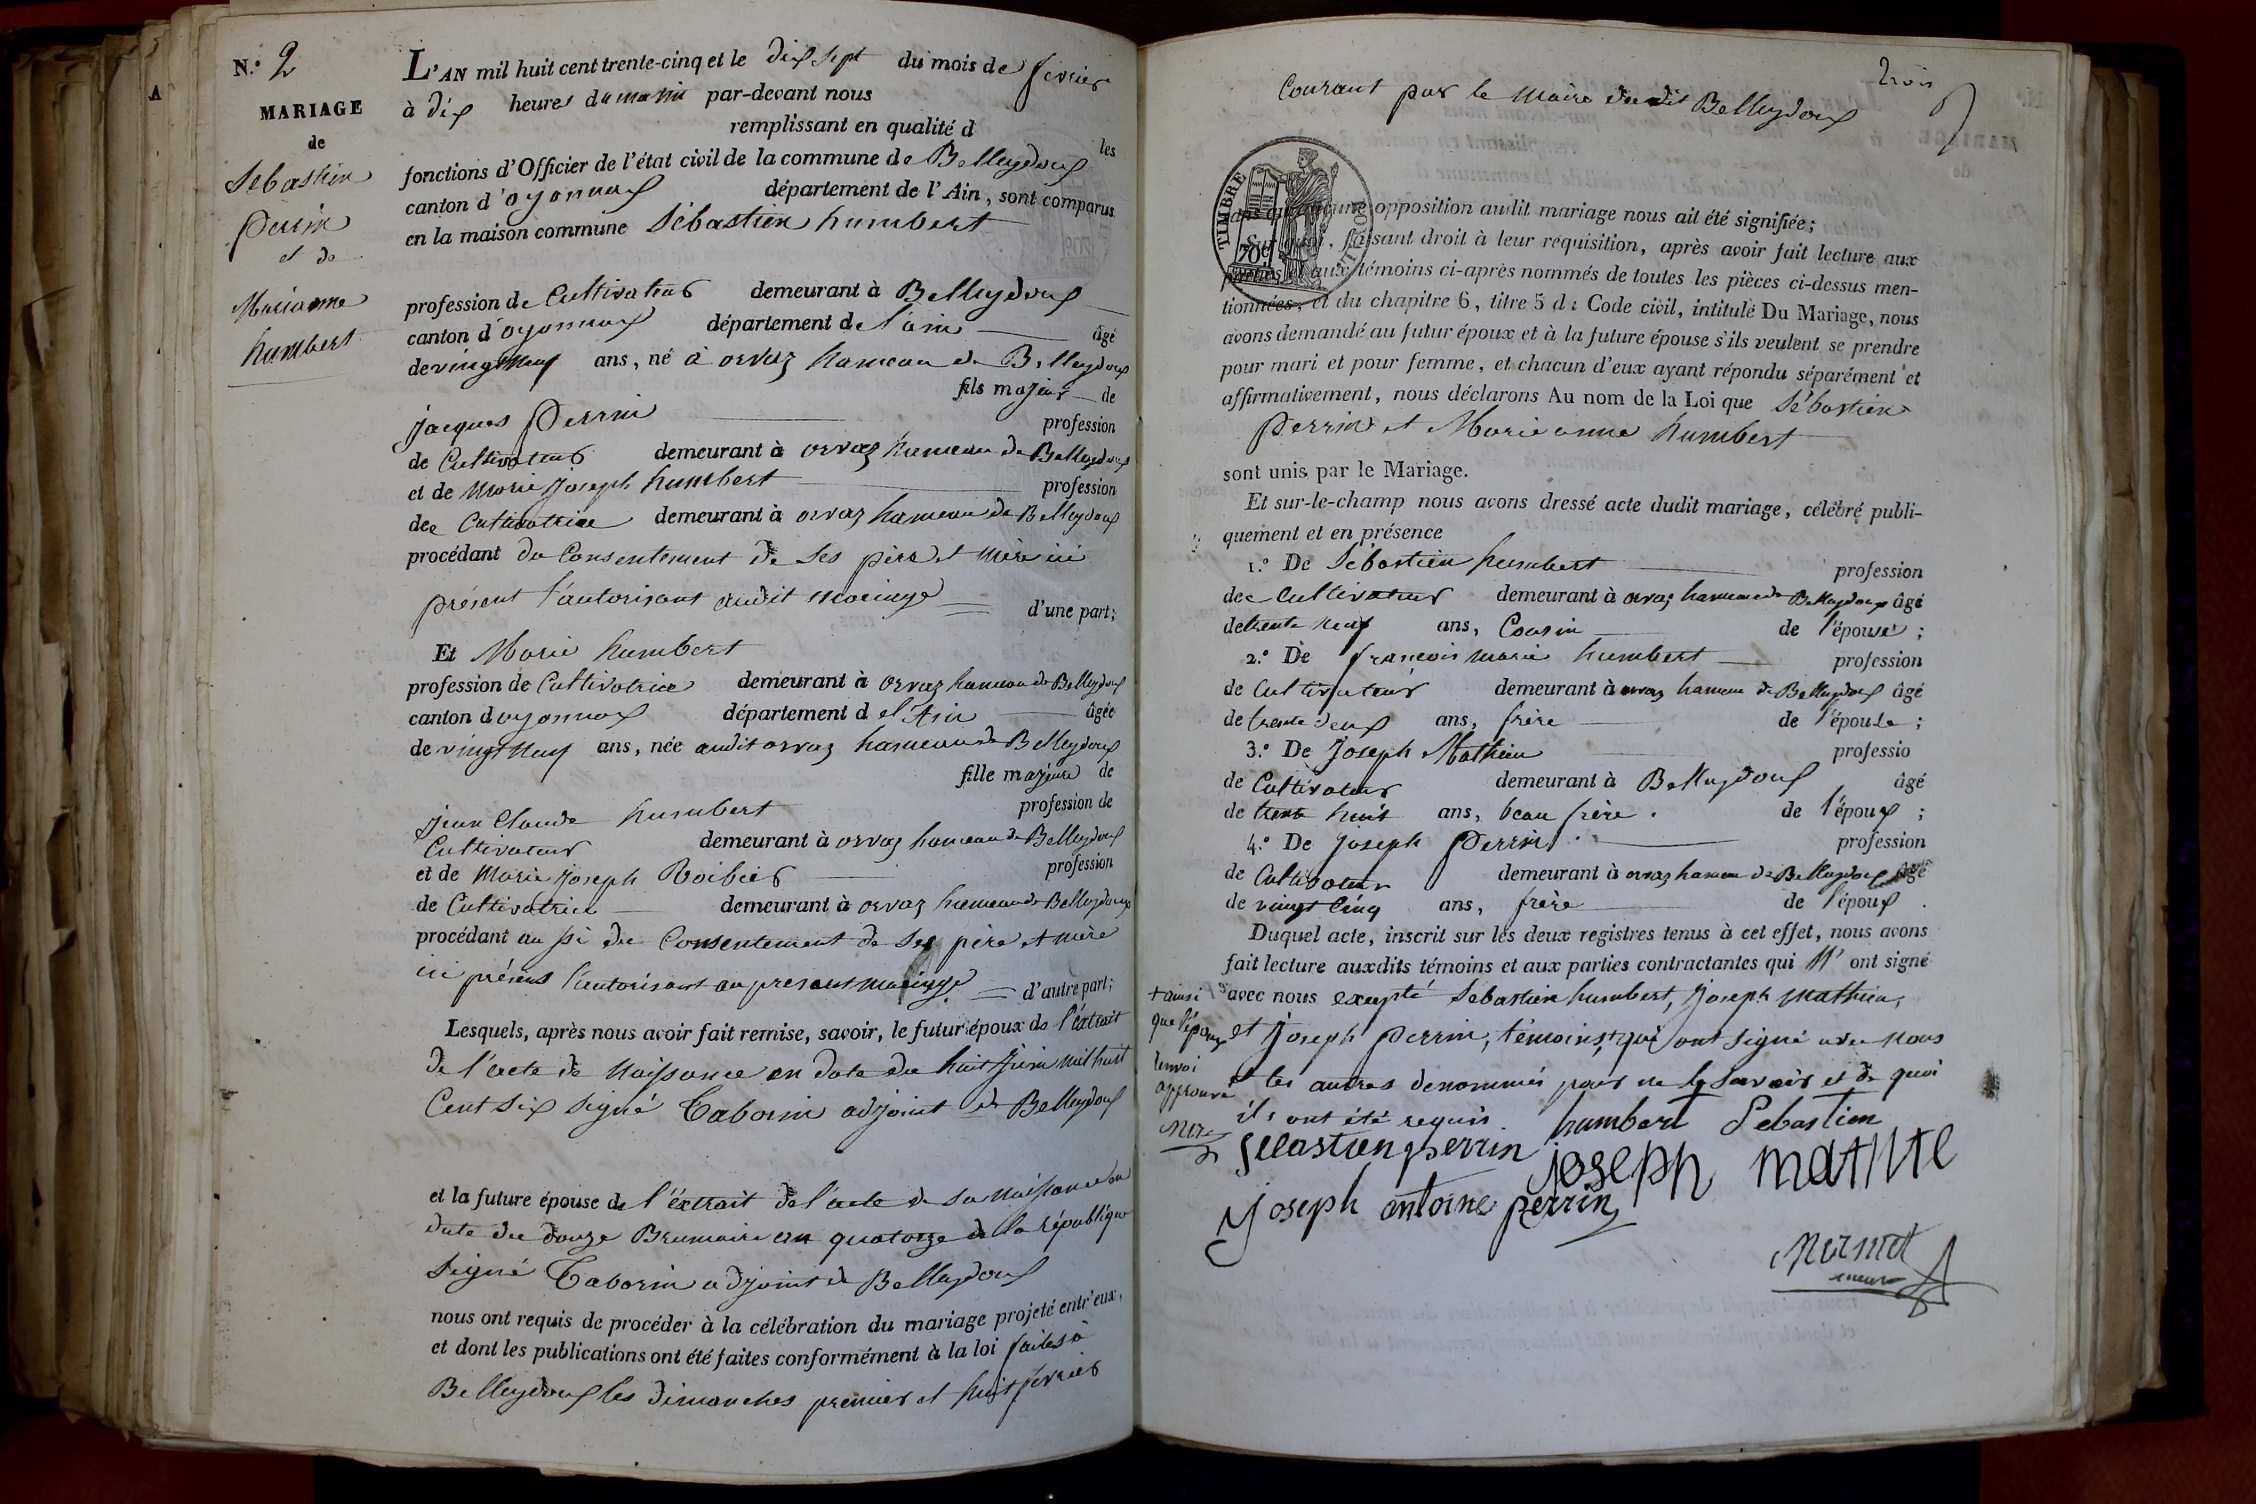 N.° 2
MARIAGE
de
Sebastien
Perrin
et de
Marianne
humbert
L'AN mil huit cent trente-cinq et le dix sept du mois de fevrier
à dix heures du matin par-devant nous
remplissant en qualité d
les
fonctions d'Officier de l'état civil de la commune de Belleydoux
canton d'oyonnax département de l'Ain, sont comparus
en la maison commune Sébastien humbert
profession de Cultivateur demeurant à Belleydoux
canton d'oyonnax département de l'ain âgé
de vingt neuf ans, né à orvaz hameau de Belleydoux
fils majeur de
jacques Perrin
profession
de Cultivateur demeurant à orvaz hameau de Belleydoux
et de Marie Joseph humbert profession
de Cultivatrice demeurant à orvaz hameau de Belleydoux
procédant du Consentement de ses père et mère ici
présent l'autorisant audit mariage d'une part;
Et Marie humbert
profession de Cultivatrice demeurant à orvaz hameau de Belleydoux
canton d'oyonnax département de l'Ain âgée
de vingt neuf ans, née audit orvaz hameau de Belleydoux
fille majeure de
jean Claude humbert profession de
Cultivateur demeurant à orvaz hameau de Belleydoux
et de Marie Joseph Roibier profession
de Cultivatrice demeurant à orvaz hameau de Belleydoux
procédant au si du Consentement de ses père et mère
ici présens l'autorisant au present mariage d'autre part;
Lesquels, après nous avoir fait remise, savoir, le futur époux de l'éxtrait
de l'acte de Naissance en date du huit Juin mil huit
Cent six signé Taborin adjoint de Belleydoux
et la future épouse de l'éxtrait de l'acte de sa naissance en
date du douze Brumaire an quatorze de la république
signé Taborin adjoint de Belleydoux
nous ont requis de procéder à la célébration du mariage projeté entr'eux,
et dont les publications ont été faites conformément à la loi faites à
Belleydoux les dimanches premier et huit fevrier
trois
Courant par le Maire dudit Belleydoux
TIMBRE
70c
sans qu'aucune opposition audit mariage nous ait été signifiée;
Sur quoi, faisant droit à leur requisition, après avoir fait lecture aux
parties et aux témoins ci-après nommés de toutes les pièces ci-dessus men-
tionnées, et du chapitre 6, titre 5 du Code civil, intitulé Du Mariage, nous
avons demandé au futur époux et à la future épouse s'ils veulent se prendre
pour mari et pour femme, et chacun d'eux ayant répondu séparément et
affirmativement, nous déclarons Au nom de la Loi que Sébastien
Perrin et Marie anne humbert
sont unis par le Mariage.
Et sur-le-champ nous avons dressé acte dudit mariage, célébré publi-
quement et en présence
1.° De Sébastien humbert profession
de Cultivateur demeurant à orvaz hameau de Belleydoux âgé
de trente neuf ans, Cousin de l'épouse;
2.° De françois marie humbert profession
de Cultivateur demeurant à orvaz hameau de Belleydoux âgé
de trente deux ans, frère de l'épouse;
3.° De Joseph Mathieu professio
de Cultivateur demeurant à Belleydoux âgé
de trente huit ans, beau frère de l'époux;
4.° De Joseph Perrin profession
de Cultivateur demeurant à orvaz hameau de Belleydoux âgé
de vingt Cinq ans, frère de l'époux.
Duquel acte, inscrit sur les deux registres tenus à cet effet, nous avons
fait lecture auxdits témoins et aux parties contractantes qui N' ont signé
avec nous excepté Sebastien humbert, Joseph Mathieu,
et Joseph Perrin, témoins + qui ont signé avec nous
et les autres denommés pour ne le savoir et de quoi
ils ont été requis
+ ainsi
que l'époux
renvoi
approuvé
humbert Sebastien
sebastien perrin
joseph mathie
joseph antoine perrin
Mermet